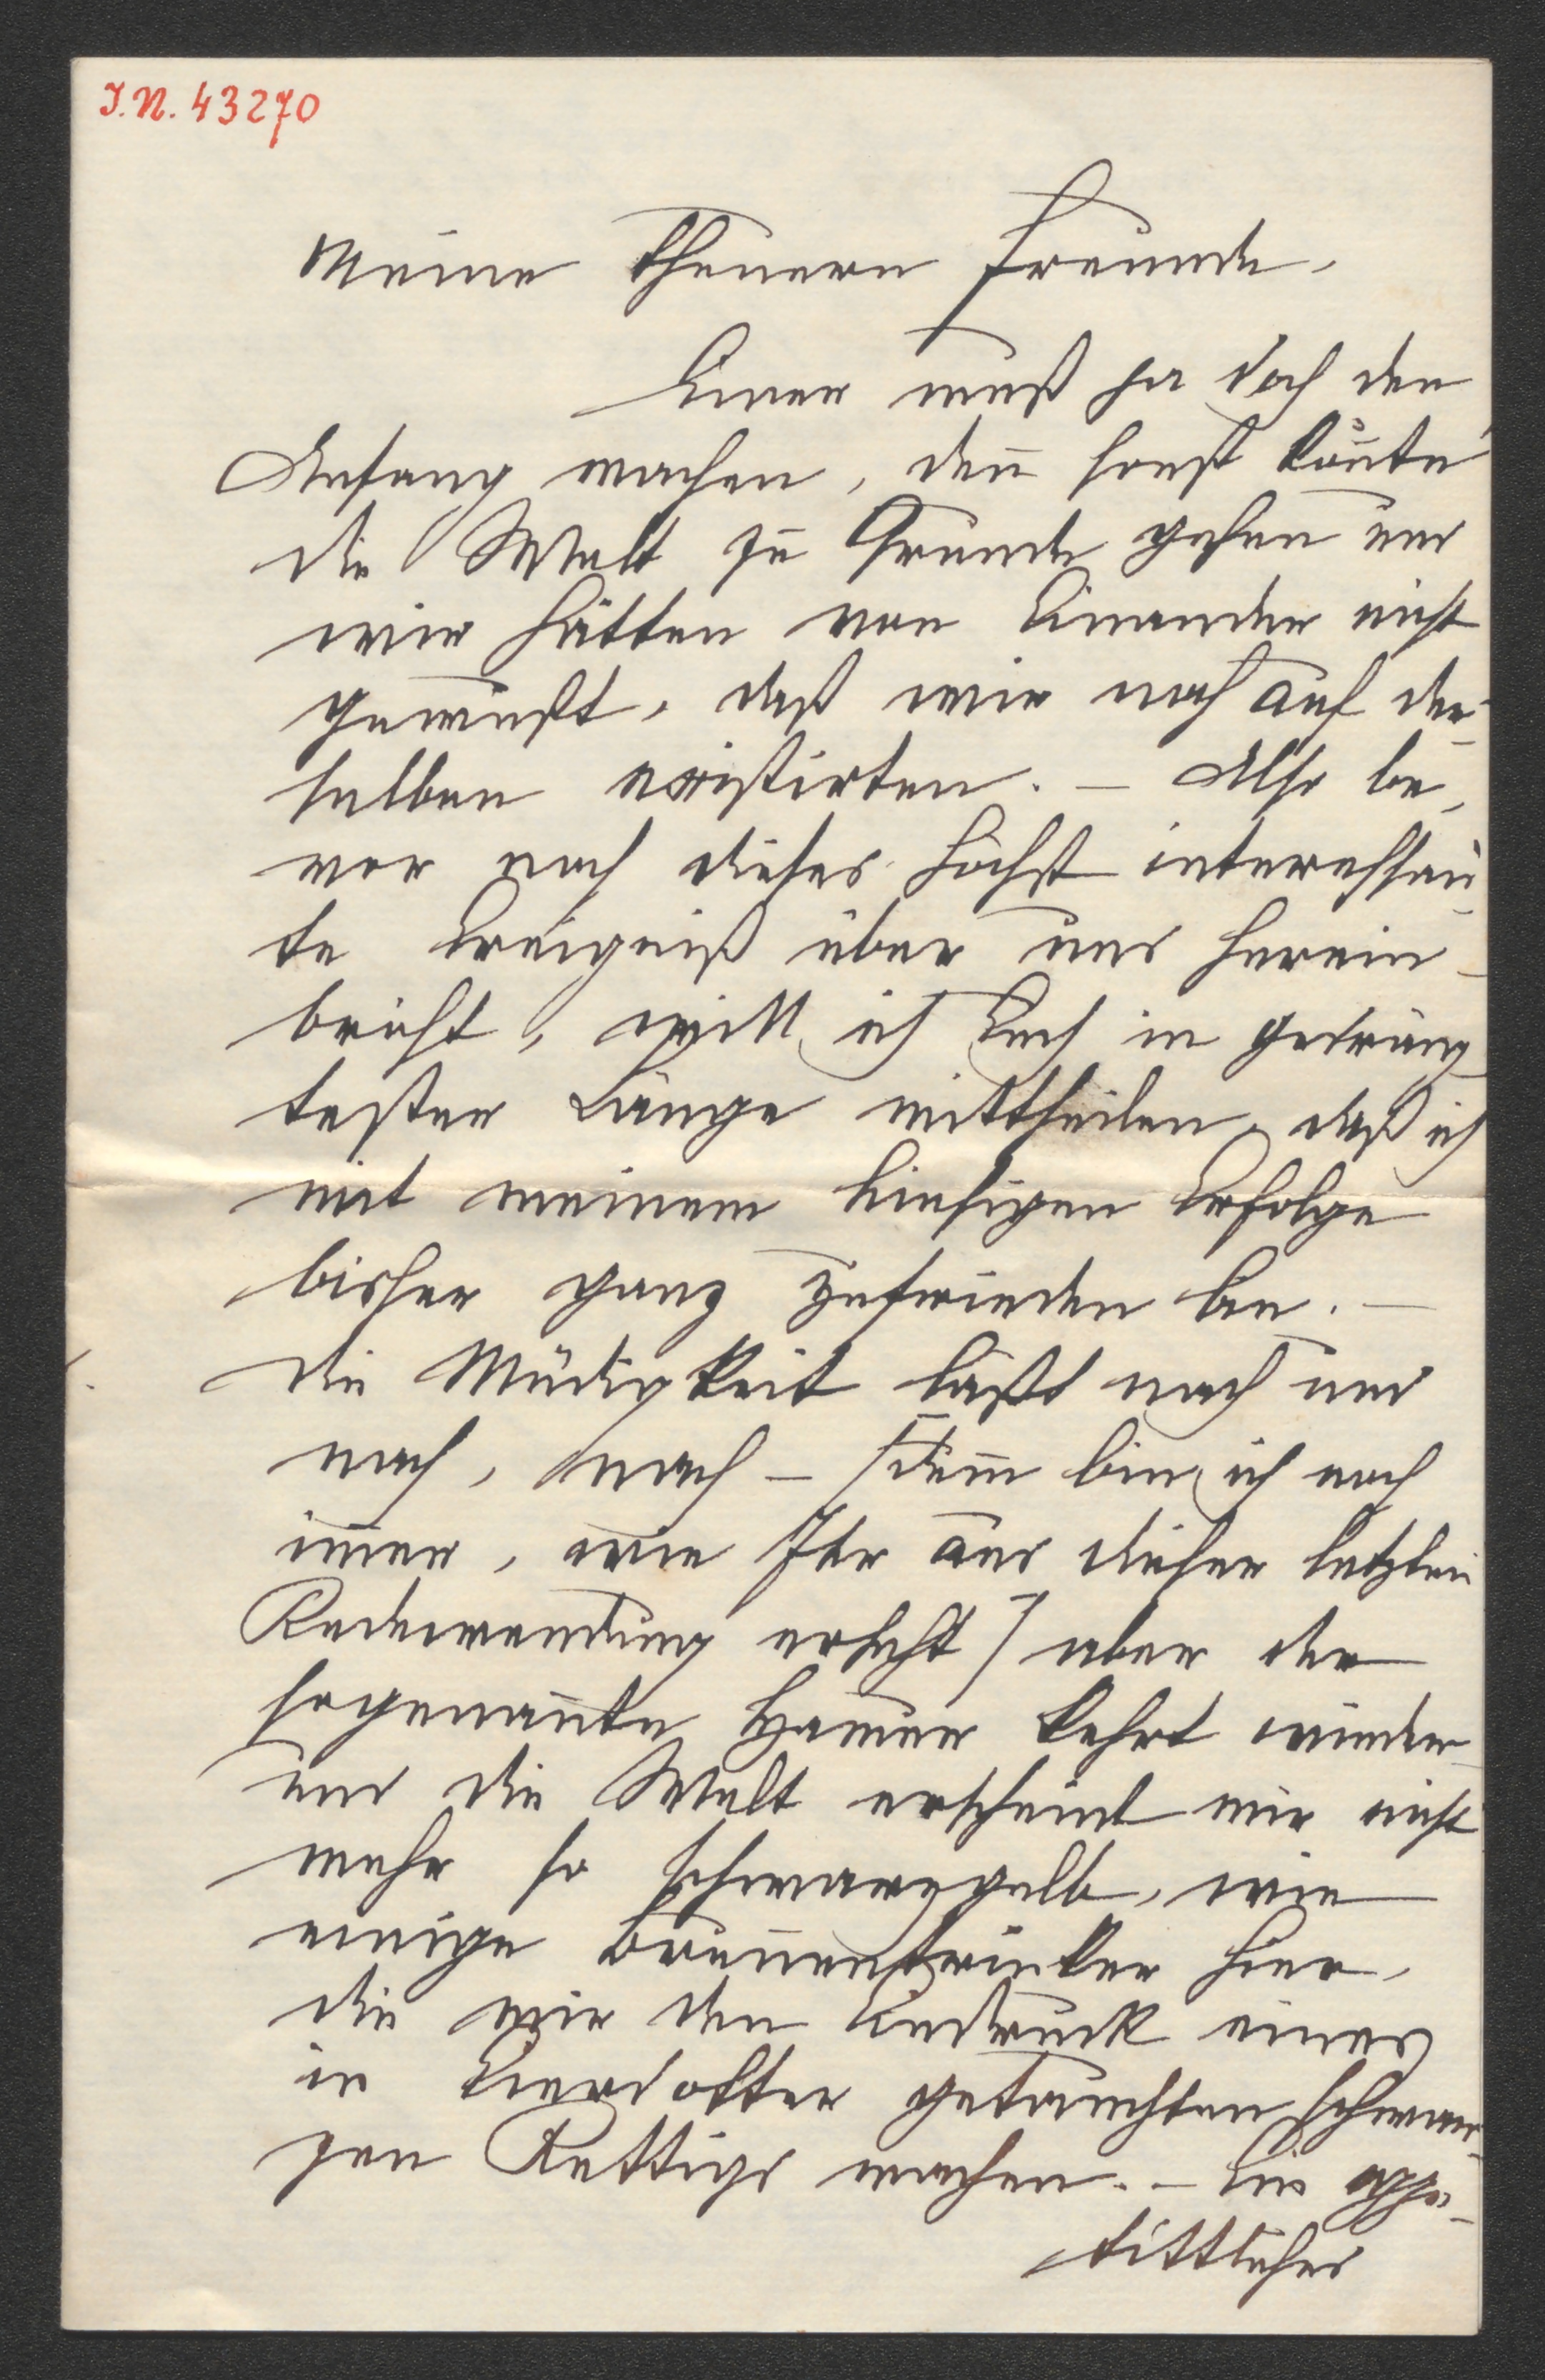 I.N. 43270
Meine Theuern Freunde,
Einer muß ja doch den
Anfang machen, den̅ sonst kön̅te
die Welt zu Grunde gehen und
wir hätten von Einander nicht
gewußt, daß wir noch auf der-
selben existirten. – Also be-
vor noch dieses höchst interessan-
te Ereigniß über uns herein-
bricht, will ich Euch in gedräng-
tester Länge mittheilen, daß ich
mit meinem hiesigen Erfolge
bisher ganz zufrieden bin. –
Die Müdigkeit läßt nach und
nach, nach – bin ich noch
im̅er, wie Ihr aus dieser letzten
Redewendung erseht) aber der
sogenan̅te Humor kehrt wieder
und die Welt erscheint mir nicht
mehr so schwarzgelb, wie
einige Brun̅entrinker hier,
die mir den Eindruck eines
in Eierdotter getauchten schwar-
zen Rettigs machen. – Ein appe-
titticher